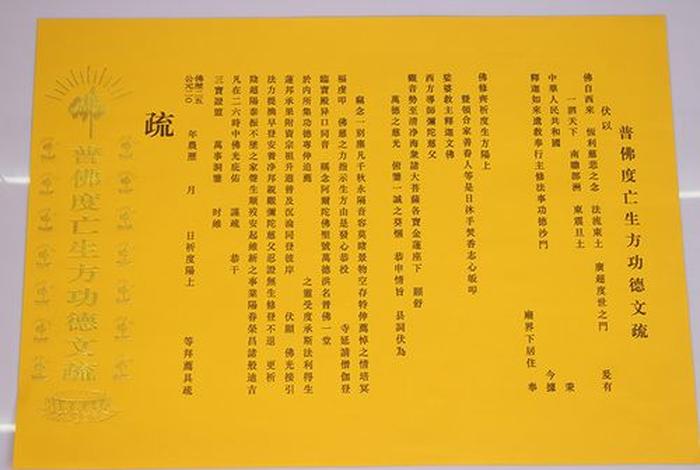 普佛度亡生方功德文疏
伏以
佛自西來 恆利慈悲之念 法流東土 廣超度世之門 爰有
一泗天下 南瞻部洲 東震旦土
中華人民共和國 今據
釋迦如來遺教奉行主修法事功德沙門 秉
廟界下居住 奉
佛修齊祈度生方陽上
暨領合家善眷人等是日沐手焚香志心皈叩
娑婆教主釋迦文佛
西方導師彌陀慈父
觀音勢至清淨海衆諸大菩薩各寶金蓮座下 願舒
萬德之慈光 俯鑒一誠之葵悃 恭申情旨 具詞伏為
竊念一別塵凡千秋永隔音容莫睹景物空存特伸薦悼之情培冥
福虔叩 佛慈之力指示生方由是發心恭投 寺延請僧伽登
臨寶殿異口同音 稱念阿彌陀佛聖號萬德洪名普佛一堂
於内所集功德專伸追薦 之靈受度承斯法利得生
蓮邦承果附資宗祖升遐普及沉淪同登彼岸 伏願 佛光接引
法力提攜早登安養淨邦親覲彌陀慈父忍證無生修登不退 更祈
陰超陽泰振不墜之家聲生順歿安起維新之事業陽眷榮昌諸般迪吉
凡在二六時中佛光庇佑 謹疏 恭干
三寶證盟 萬事洞鑒 时維
佛歷二五
公元二〇 年農歷 月 日祈度陽上 等拜薦具疏
疏
佛
普佛度亡生方功德文疏